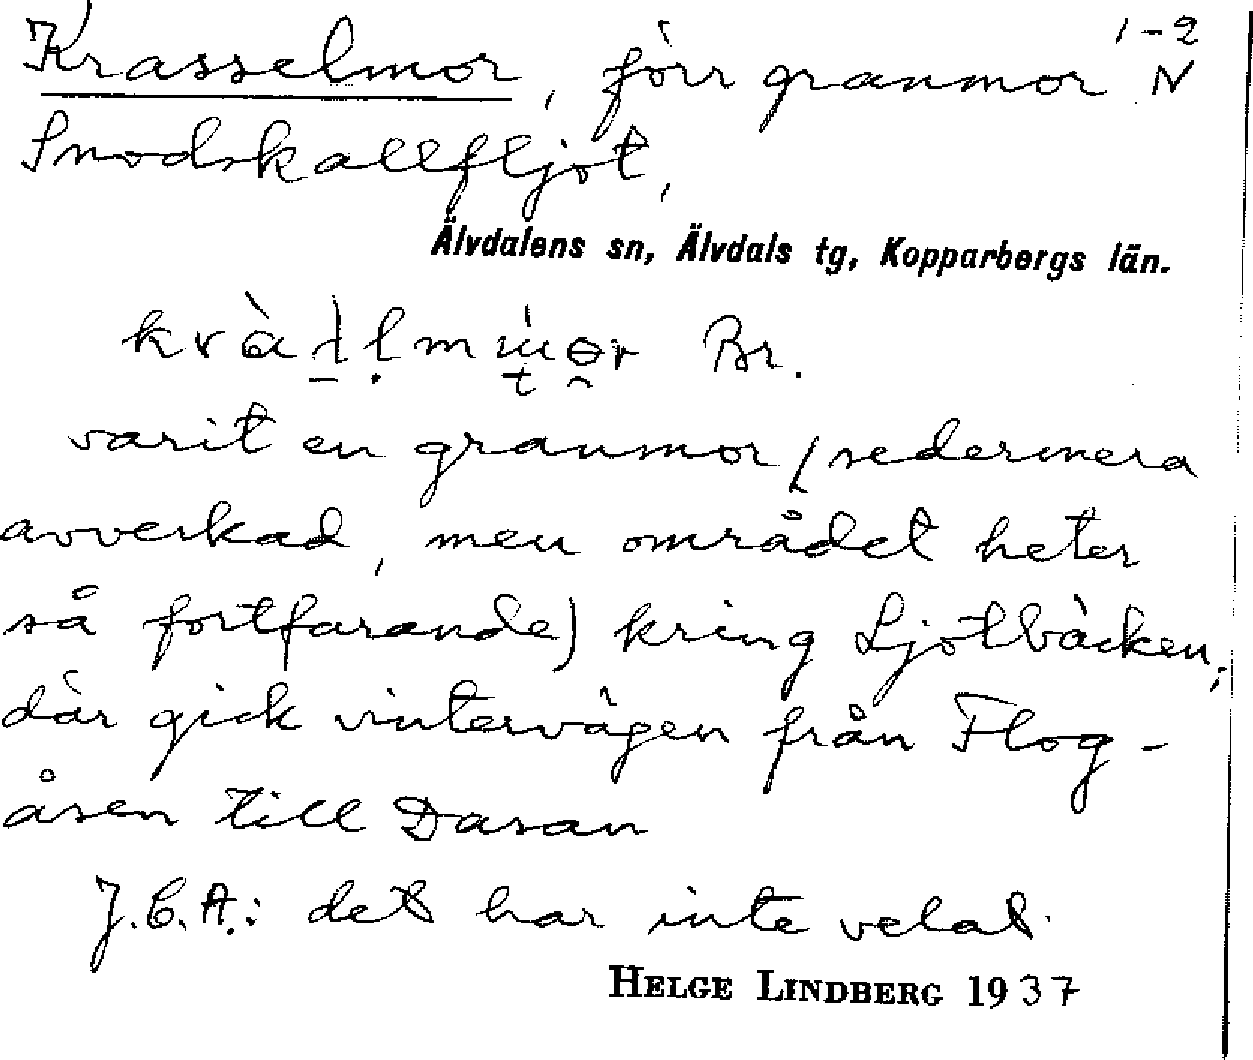 1-2
Krasselmor, förr granmor N
Snodskallfljot,
Älvdalens sn, Älvdals tg, Kopparbergs län.
Br.
varit en granmor (sedermera
avverkad, men området heter
så fortfarande) kring Ljotbäcken;
där gick vintervägen från Flog-
åsen till Dasan
J.E.A.: det har inte velat
HELGE LINDBERG 1937